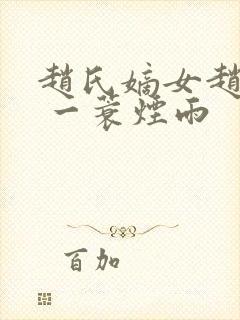 趙氏嫡女趙
一蓑煙雨
百加